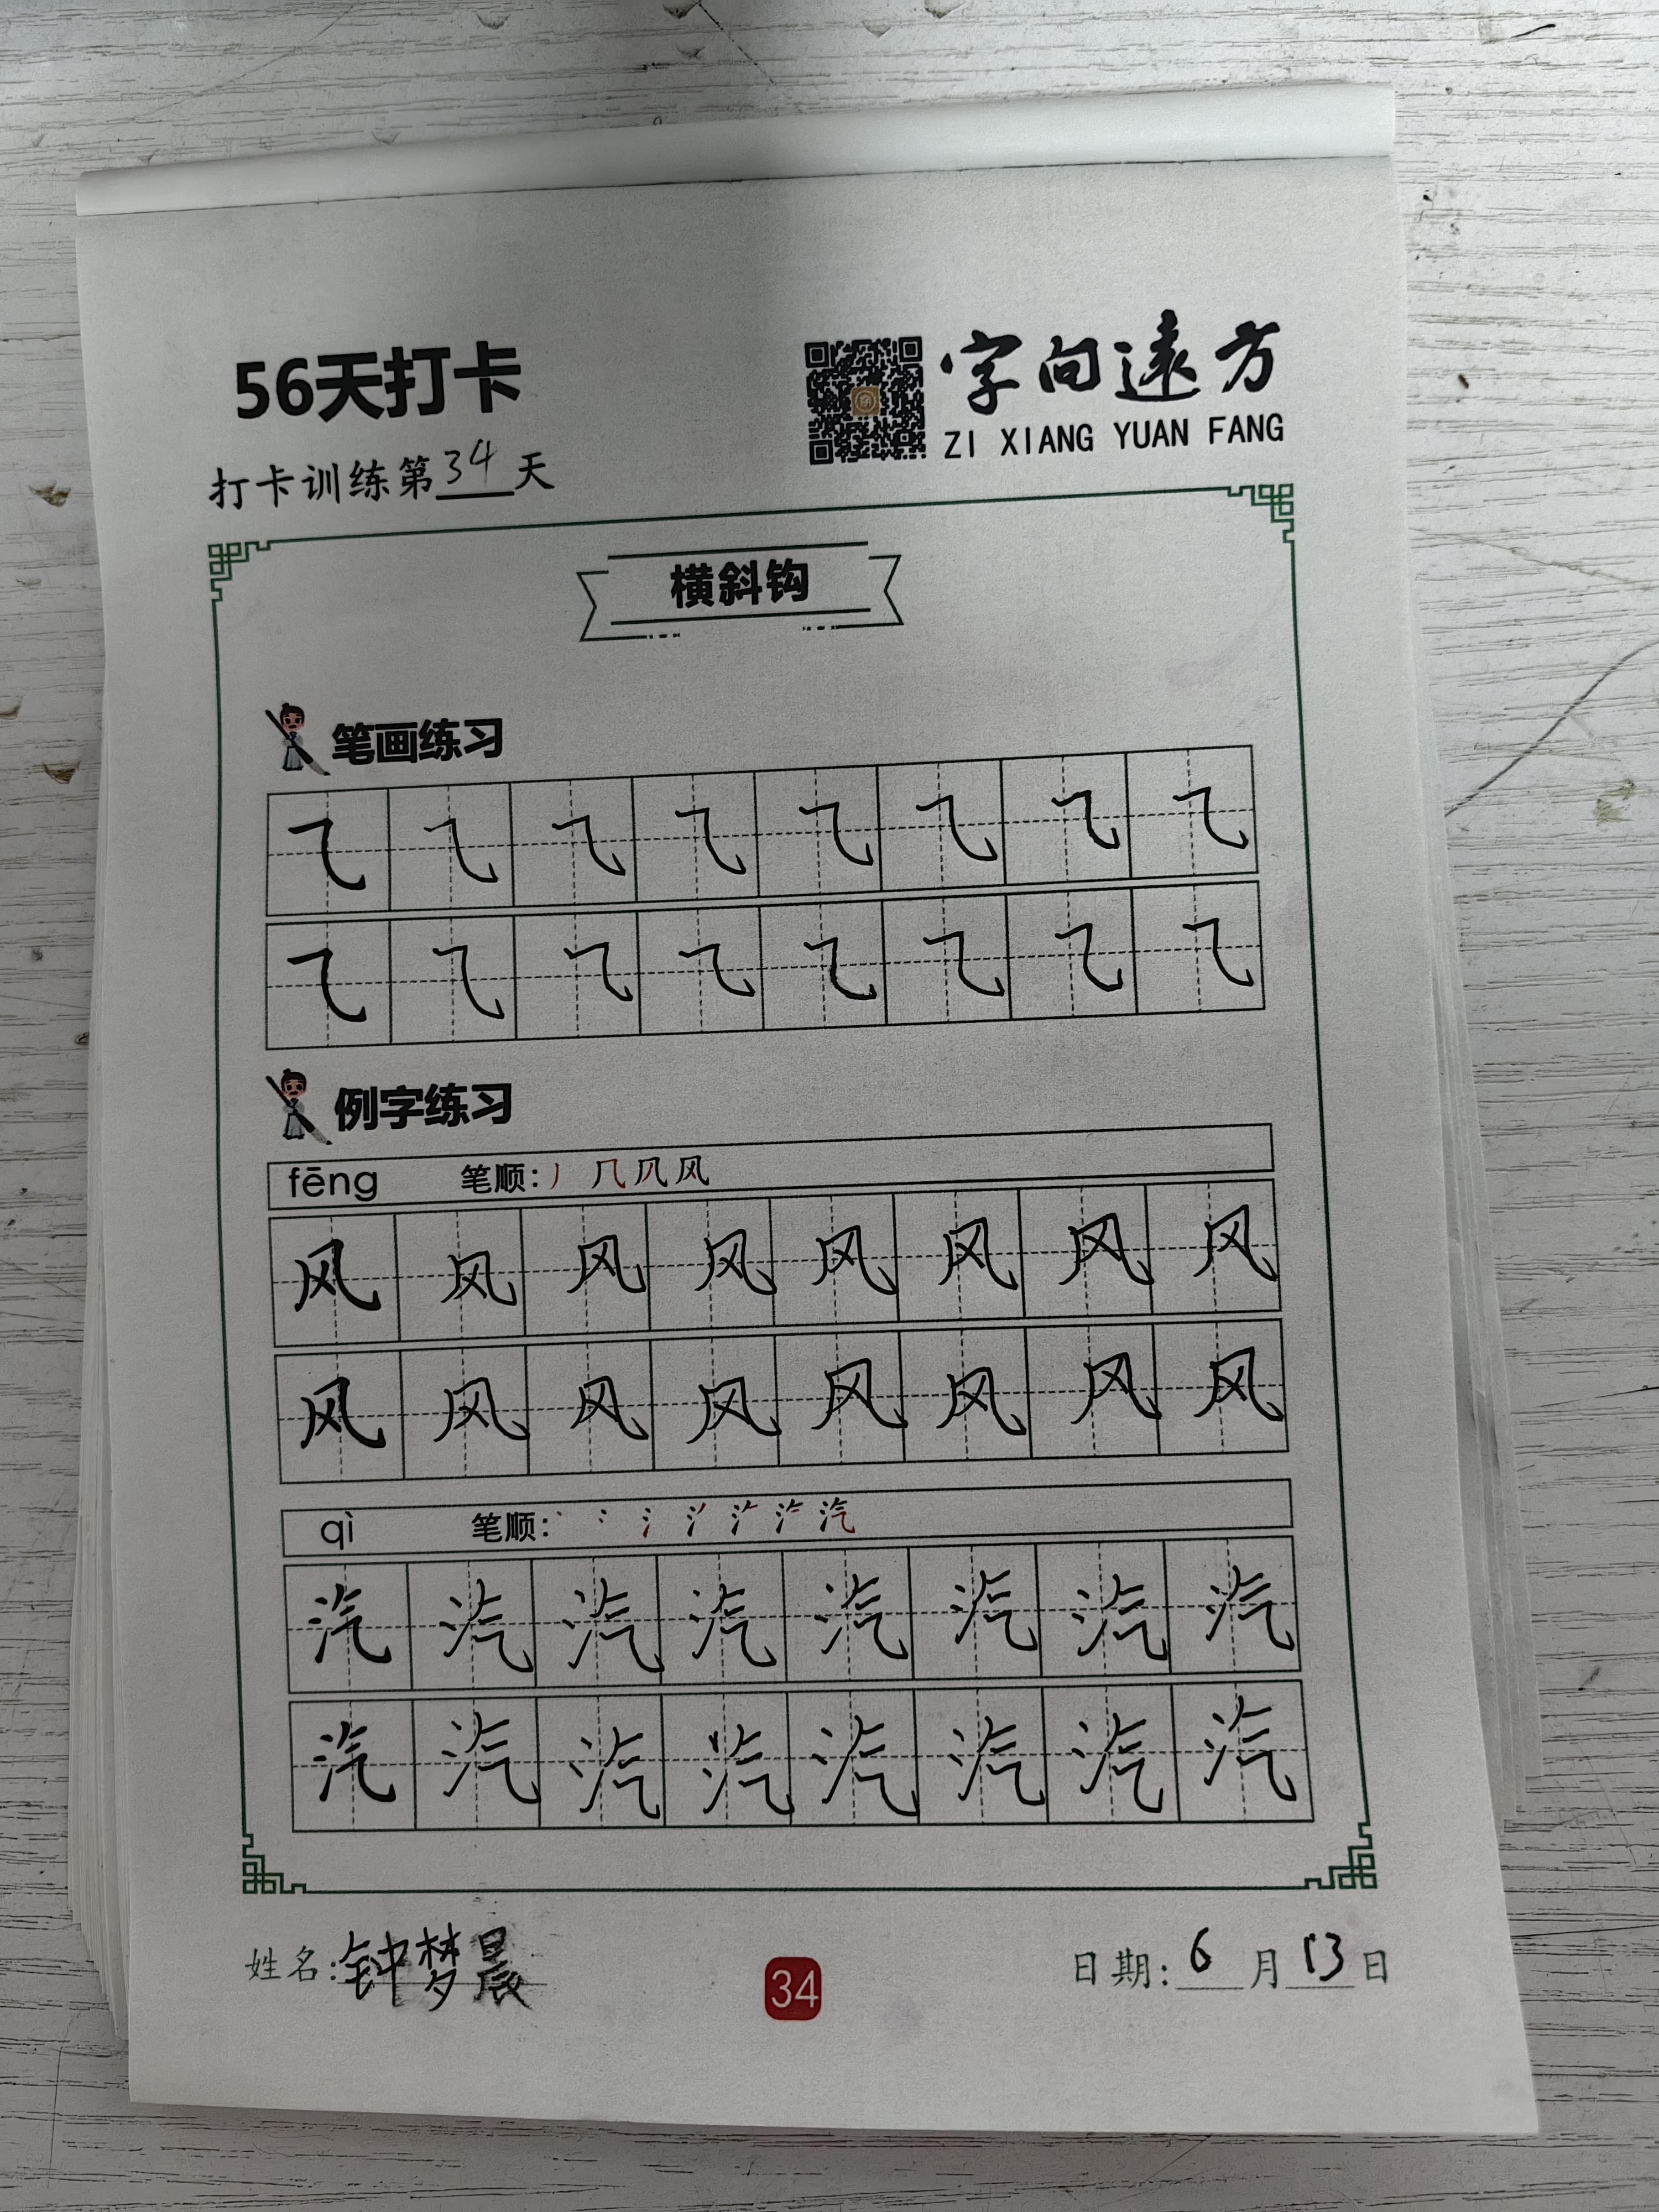 56天打卡
字向遠方
ZI XIANG YUAN FANG
打卡训练第34天
横斜钩
笔画练习
⺄ ⺄ ⺄ ⺄ ⺄ ⺄ ⺄ ⺄
⺄ ⺄ ⺄ ⺄ ⺄ ⺄ ⺄ ⺄
例字练习
fēng 笔顺: 丿 几 凨 风
风 风 风 风 风 风 风 风
风 风 风 风 风 风 风 风
qì 笔顺: 汽
汽 汽 汽 汽 汽 汽 汽 汽
汽 汽 汽 汽 汽 汽 汽 汽
姓名:钟梦晨
34
日期:6月13日